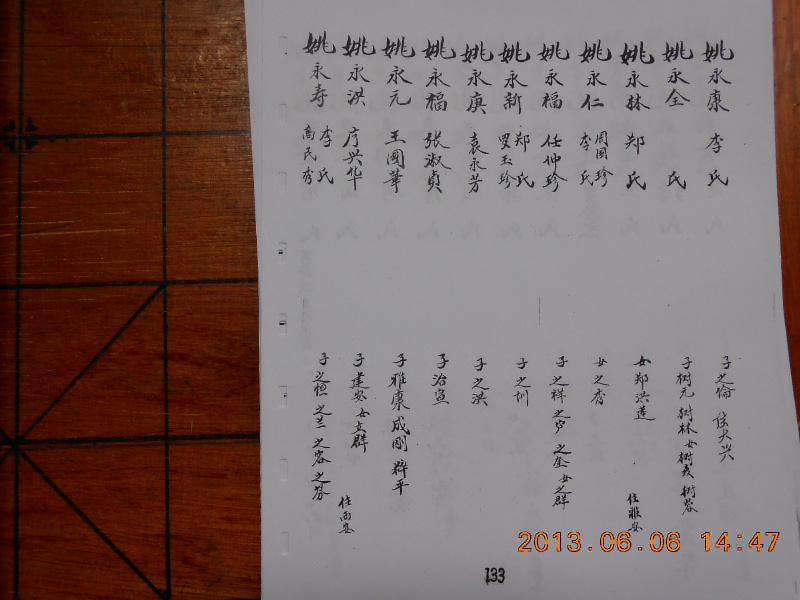 姚永康 李氏
子之倫 住大兴
姚永全 氏
子树元 树林 女树友 树蓉
姚永林 郑氏
女郑洪莲 住雅安
姚永仁 周国珍 李氏
女之香
姚永福 任仲珍
子之祥 之卢 之全 女之群
姚永新 郑氏 罗玉珍
子之训
姚永庚 袁永芳
子之洪
姚永福 张淑貞
子治宣
姚永元 王國華
子雅康 成刚 辉平
姚永洪 序兴华
子建安 女立群 住西安
姚永寿 李氏 高民秀
子之恒 之兰 之容 之芬
133
2013.06.06 14:47